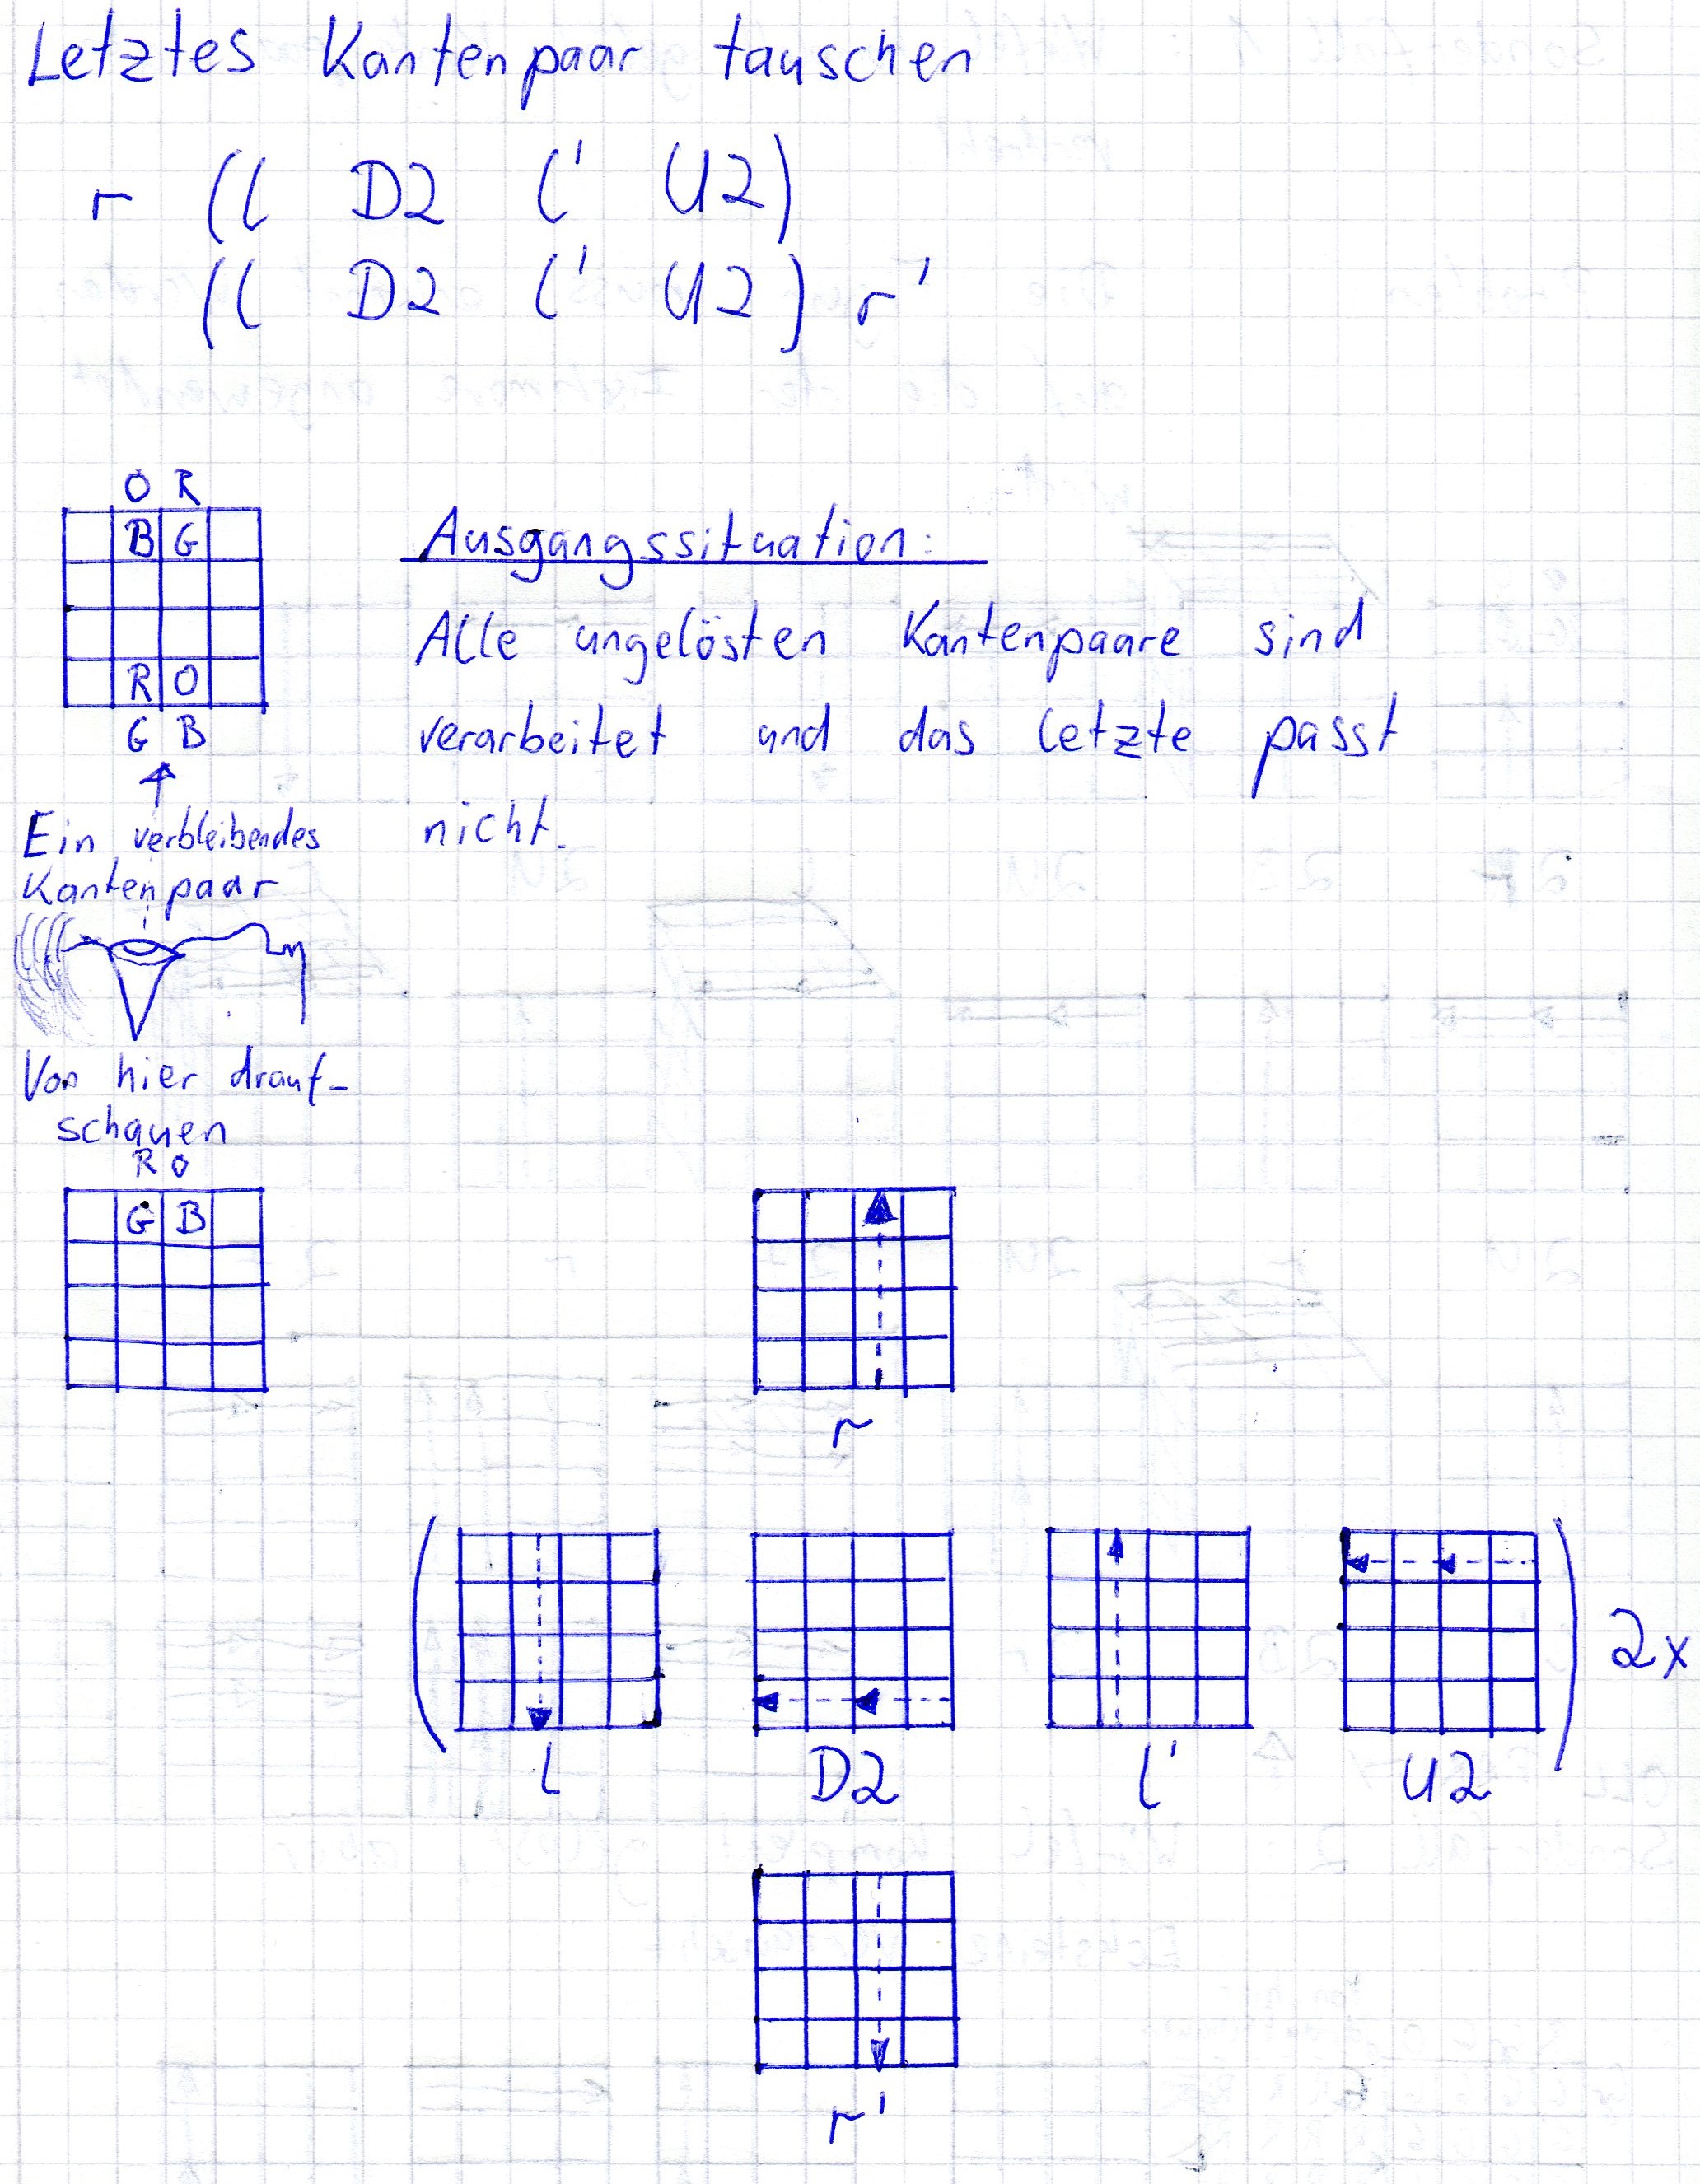 Letztes Kantenpaar tauschen
r (l D2 l' U2)
(l D2 l' U2) r'
O R
B G
R O
G B
Ausgangssituation:
Alle ungelösten Kantenpaare sind
verarbeitet und das letzte passt
nicht.
Ein verbleibendes
Kantenpaar
Von hier drauf-
schauen
R O
G B
r
l D2 l' U2
2x
r'